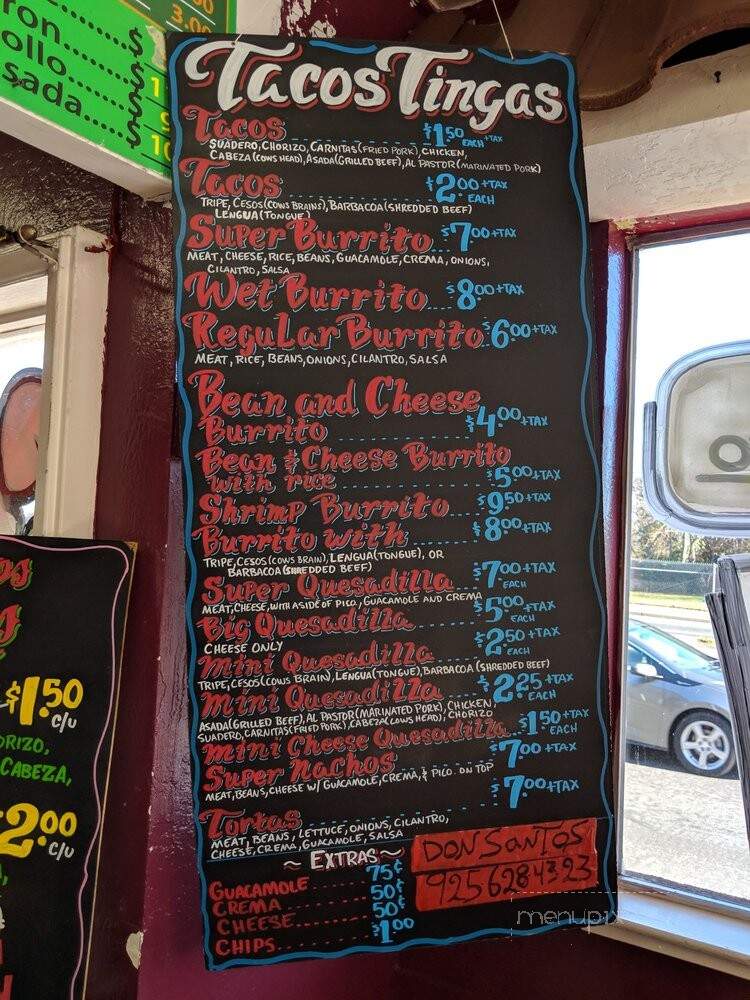 ron....$
ollo....$
sada....$
3.00
Tacos Tingas
Tacos $1.50 EACH +TAX
SUADERO, CHORIZO, CARNITAS (FRIED PORK), CHICKEN,
CABEZA (COWS HEAD), ASADA (GRILLED BEEF), AL PASTOR (MARINATED PORK)
Tacos $2.00 +TAX EACH
TRIPE, CESOS (COWS BRAINS), BARBACOA (SHREDDED BEEF)
LENGUA (TONGUE)
Super Burrito.. $7.00 +TAX
MEAT, CHEESE, RICE, BEANS, GUACAMOLE, CREMA, ONIONS,
CILANTRO, SALSA
Wet Burrito... $8.00 +TAX
Regular Burrito. $6.00 +TAX
MEAT, RICE, BEANS, ONIONS, CILANTRO, SALSA
Bean and Cheese
Burrito $4.00 +TAX
Bean & Cheese Burrito
with rice $5.00 +TAX
Shrimp Burrito... $9.50 +TAX
Burrito with $8.00 +TAX
TRIPE, CESOS (COWS BRAIN), LENGUA (TONGUE), OR
BARBACOA (SHREDDED BEEF)
Super Quesadilla... $7.00 +TAX EACH
MEAT, CHEESE, WITH A SIDE OF PICO., GUACAMOLE AND CREMA
Big Quesadilla $5.00 +TAX EACH
CHEESE ONLY
Mini Quesadilla $2.50 +TAX EACH
TRIPE, CESOS (COWS BRAIN), LENGUA (TONGUE), BARBACOA (SHREDDED BEEF)
Mini Quesadilla $2.25 +TAX EACH
ASADA (GRILLED BEEF), AL PASTOR (MARINATED PORK), CHICKEN,
SUADERO, CARNITAS (FRIED PORK), CABEZA (COWS HEAD), CHORIZO
Mini Cheese Quesadilla.. $1.50 +TAX EACH
Super Nachos $7.00 +TAX
MEAT, BEANS, CHEESE W/ GUACAMOLE, CREMA, & PICO. ON TOP
$7.00 +TAX
Tortas
MEAT, BEANS, LETTUCE, ONIONS, CILANTRO,
CHEESE, CREMA, GUACAMOLE, SALSA
~ EXTRAS ~
GUACAMOLE 75¢
CREMA 50¢
CHEESE 50¢
CHIPS $1.00
DON SANTOS
925 628 4323
$1.50 c/u
CABEZA,
$2.00 c/u
menupix